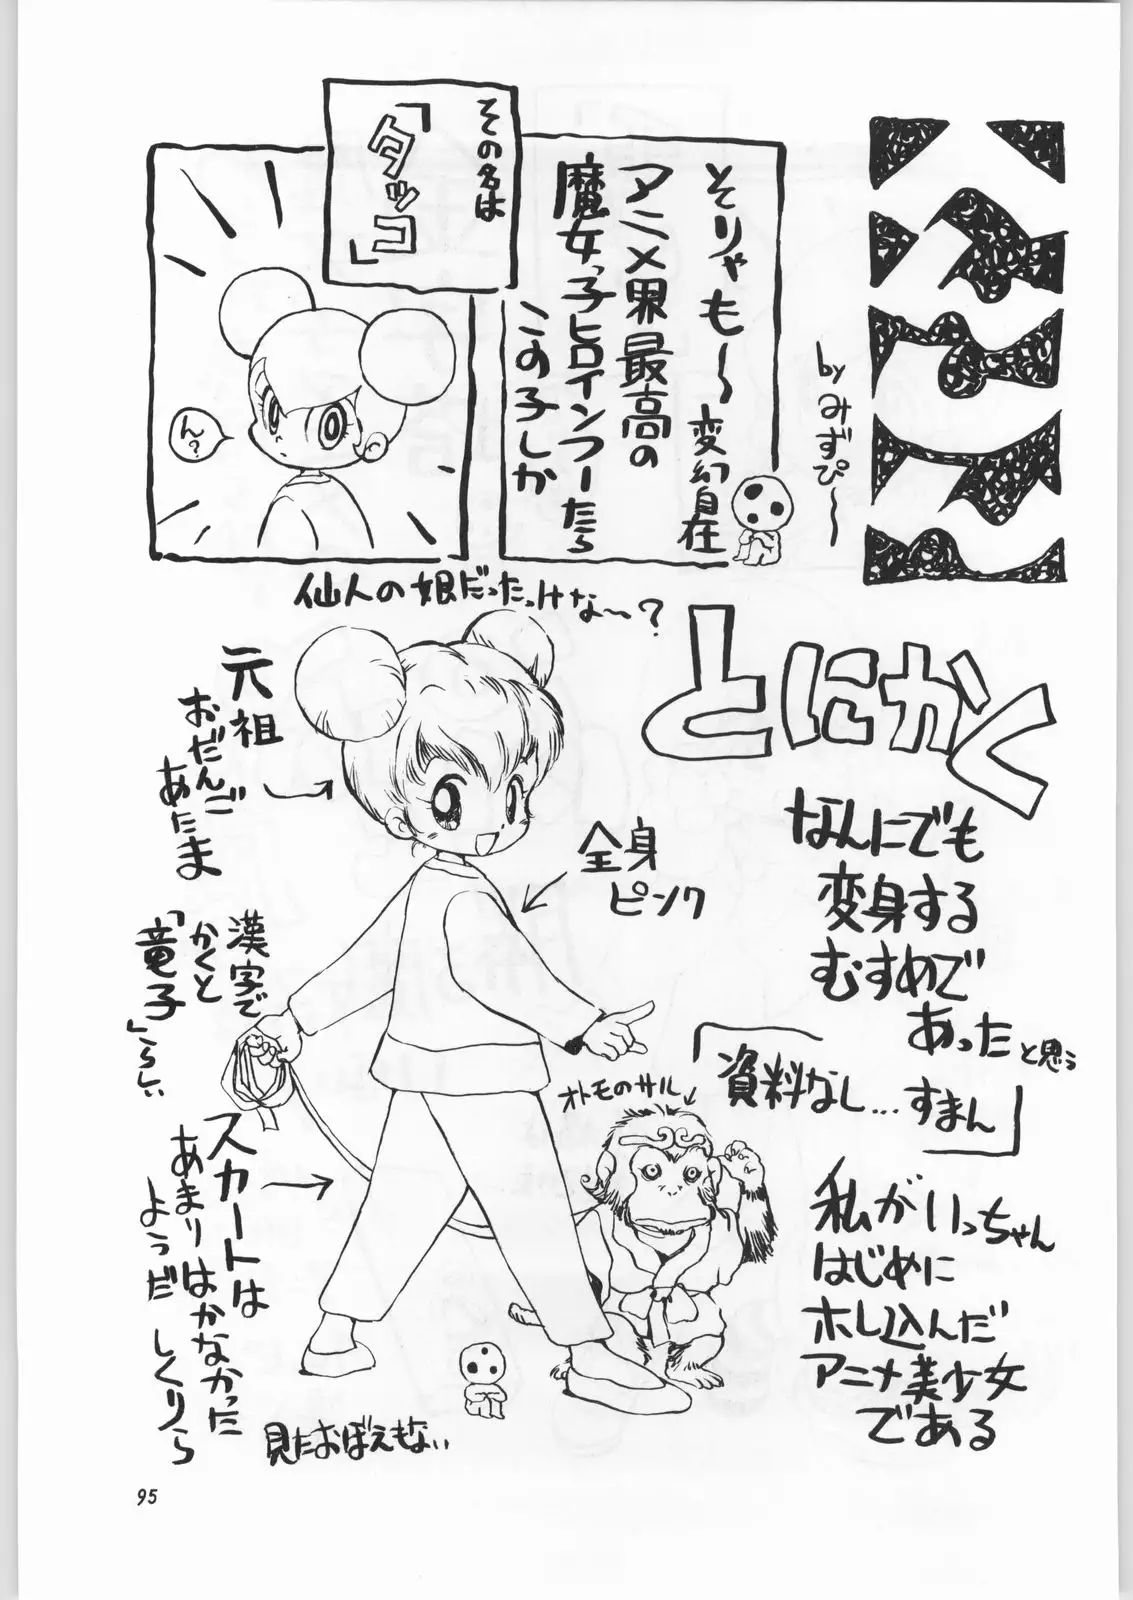 by みずぴ〜〜
そりゃも〜〜変幻自在
アニメ界最高の
魔女っ子ヒロインつーたら
この子しか
その名は
「タッコ」
ん?
仙人の娘だったっけな〜?
とにかく
なんにでも
変身する
むすめで
あったと思う
「資料なし…すまん」
私がいっちゃん
はじめに
ホレ込んだ
アニメ美少女
である
元祖
おだんご
あたま
全身
ピンク
漢字で
かくと
「竜子」らしい
オトモのサル
スカートは
あまりはかなかった
ようだ しくりら
見たおぼえもない
95